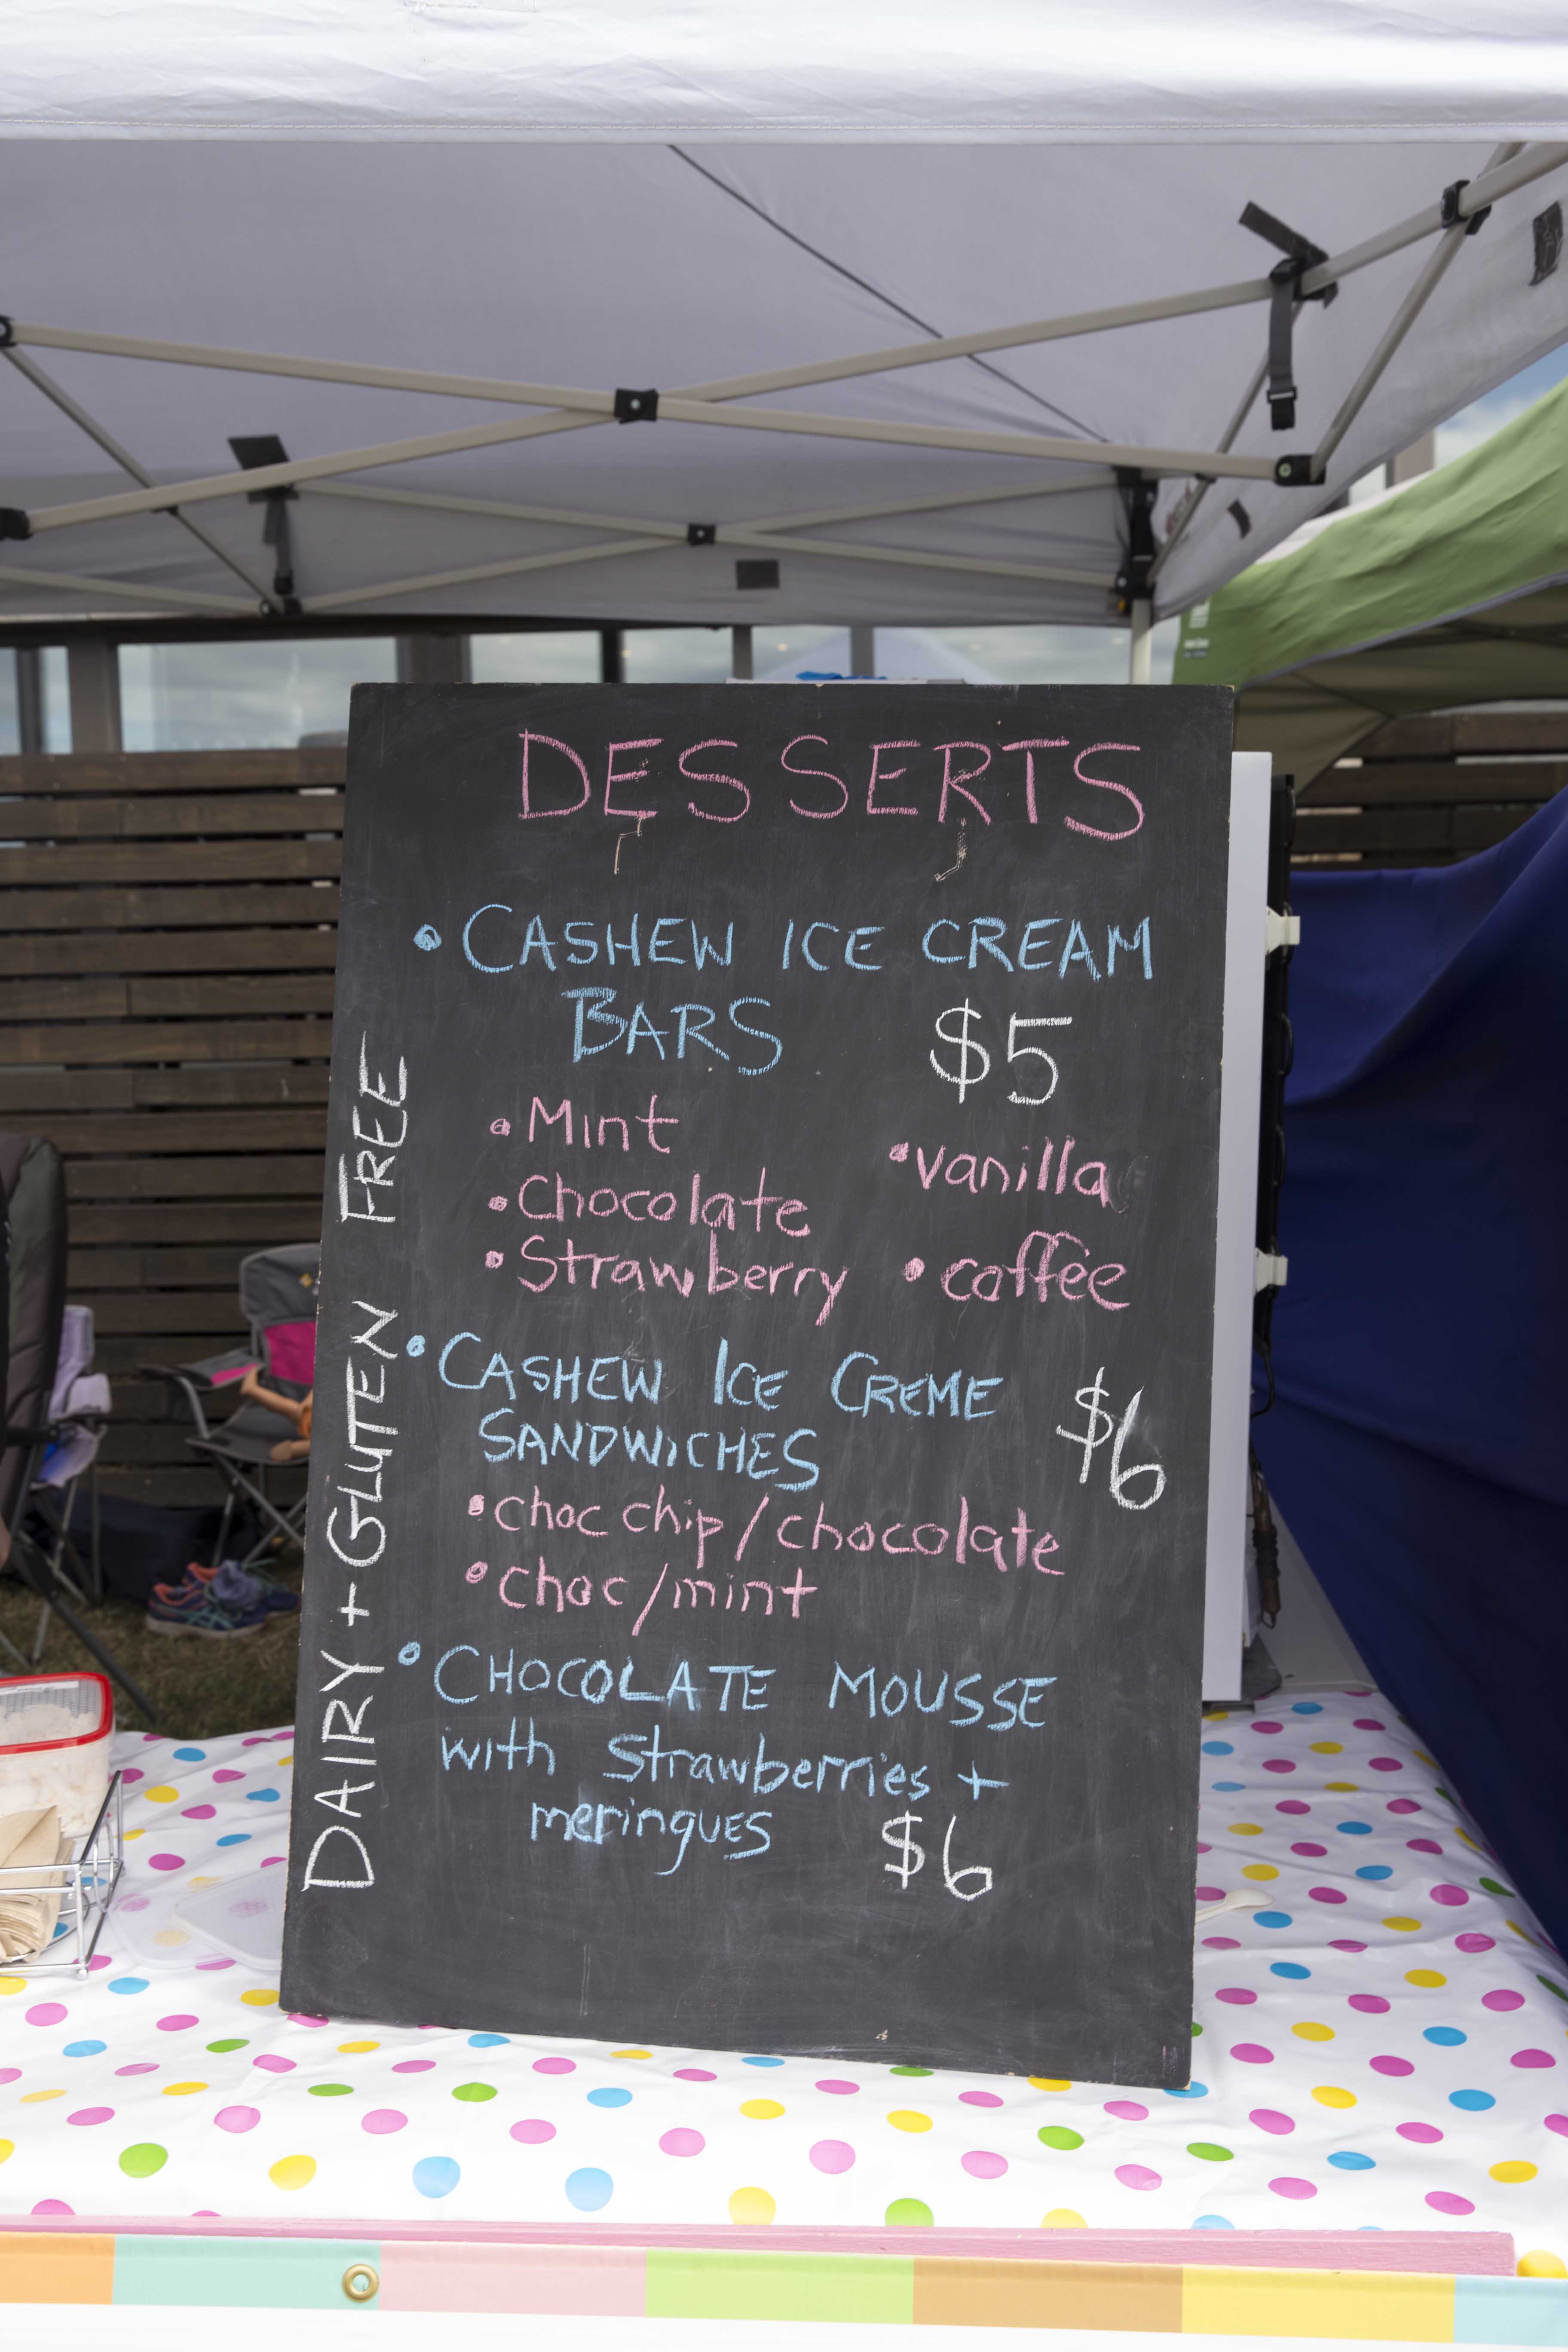 DESSERTS
• CASHEW ICE CREAM
BARS $5
• Mint
• vanilla
• Chocolate
• Strawberry • coffee
• CASHEW ICE CREME
SANDWICHES $6
• choc chip/chocolate
• choc/mint
• CHOCOLATE MOUSSE
with Strawberries +
meringues $6
DAIRY + GLUTEN FREE